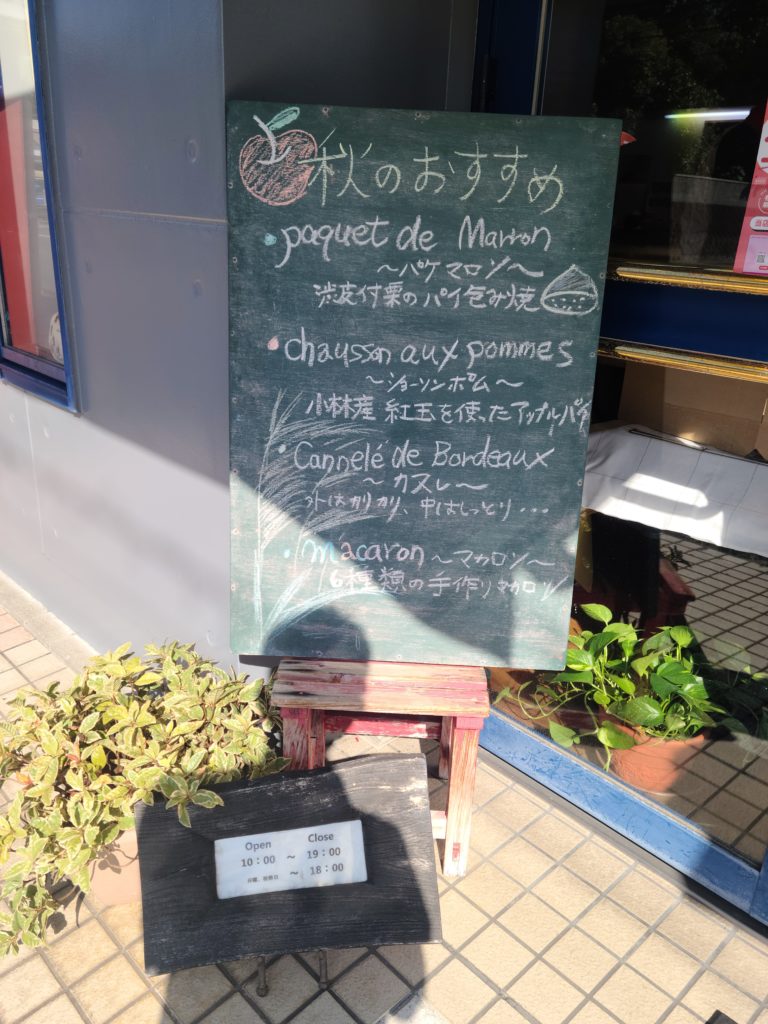 秋のおすすめ
paquet de Marron
〜パケマロン〜
渋皮付栗のパイ包み焼
chausson aux pommes
〜ショーソンポム〜
小林産 紅玉を使ったアップルパイ
Cannelé de Bordeaux
〜カヌレ〜
外はカリカリ、中はしっとり・・・
macaron 〜マカロン〜
6種類の手作りマカロン
Open Close
10:00 〜 19:00
〜 18:00